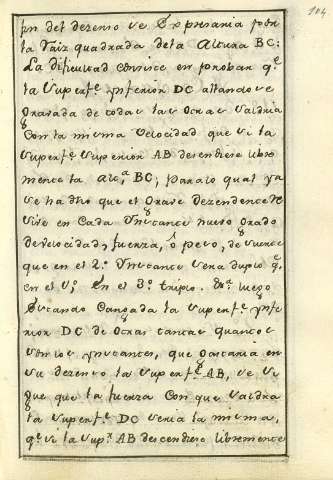 104
fin del dezenso se Expresaria por
la raiz quadrada de la Altura BC:
La dificultad consiste en probar q.e
la superf.e ynferior DC allandose
gravada de todas las otras saldria
con la misma velocidad que si la
superf.e superior AB desendiere libre
mente la alt.a BC; para lo qual ya
se ha dho que el Grave dezendente re
sive en cada Ynstante nuevo grado
de velocidad, fuerza, ó peso, de suerte
que en el 2.º Ynstante sera duplo q.e
en el 1.º, en el 3.º triplo. &.a luego
estando cargada la superf.e ynfe
rior DC de otras tantas quantos
son los ynstantes, que gastaria en
su dezenso la superf.e AB, se si
gue que la fuerza con que saldra
la superf.e DC seria la misma,
q.e si la sup.e AB descendiese libremente